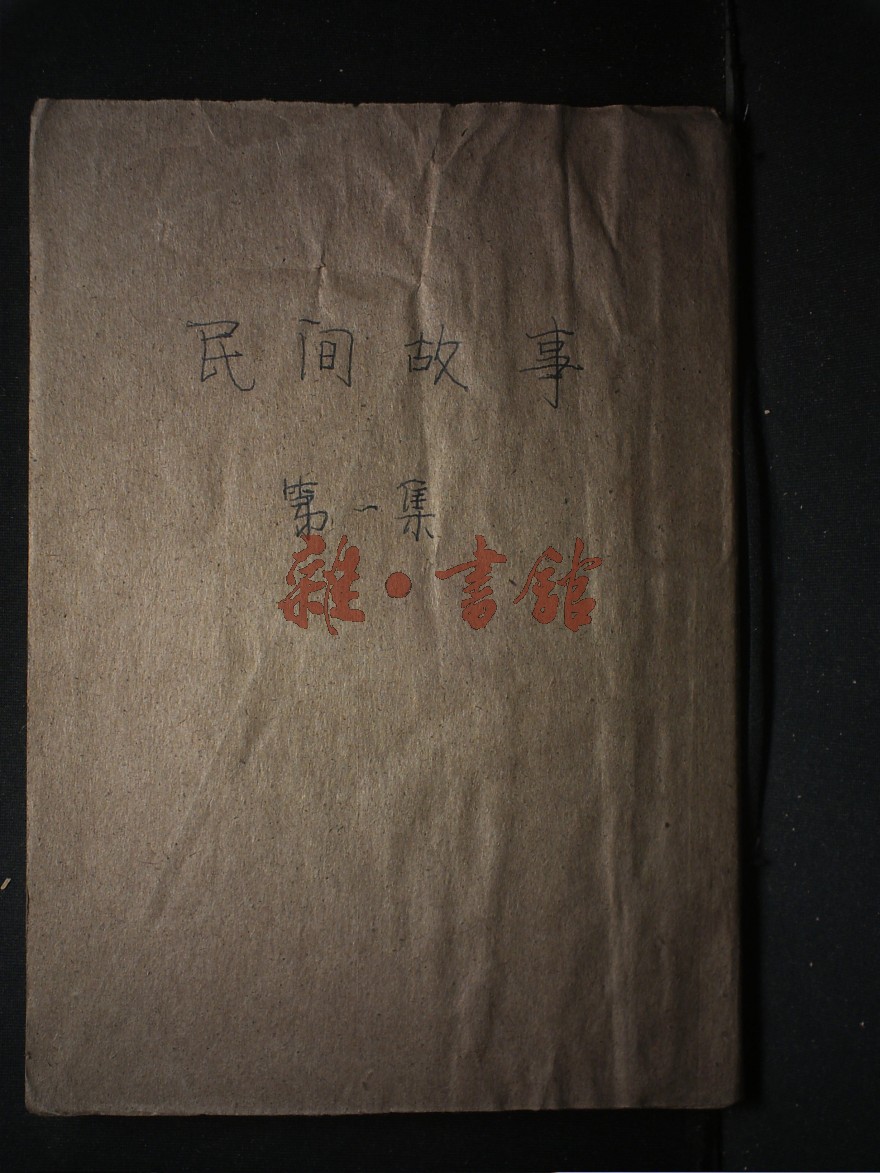 民间故事
第一集
雜·書館